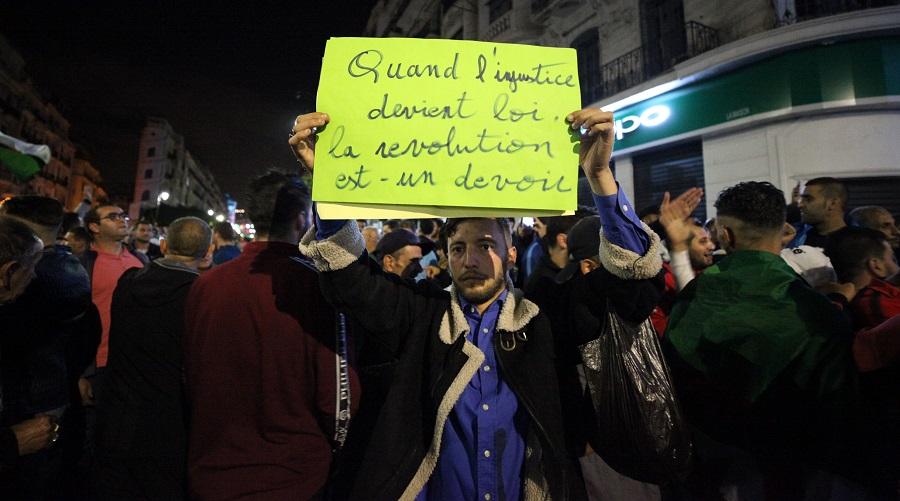 Quand l'injustice
devient loi.
la revolution
est-un devoir
ppo